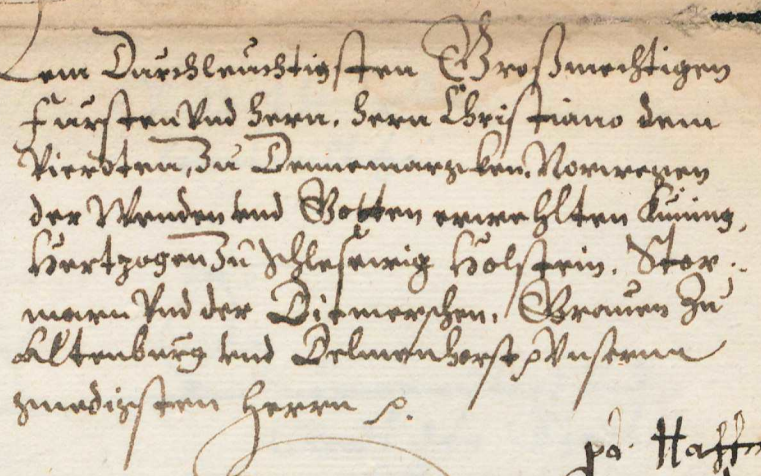 Dem Durchleuchtigsten Großmechtigen
Fursten Vnd Hern, Hern Christiano dem
Vierdten, Zu Dennemarcken, Norwegen
der Wenden vnd Gotten erwehlten Kuning,
Hertzogen Zu Schleswig Holstein, Stor-
marn Vnd der Ditmerschen, Grauen Zu
Altenburg vnd Delmenhorst p Vnserm
gnedigsten Herrn p.